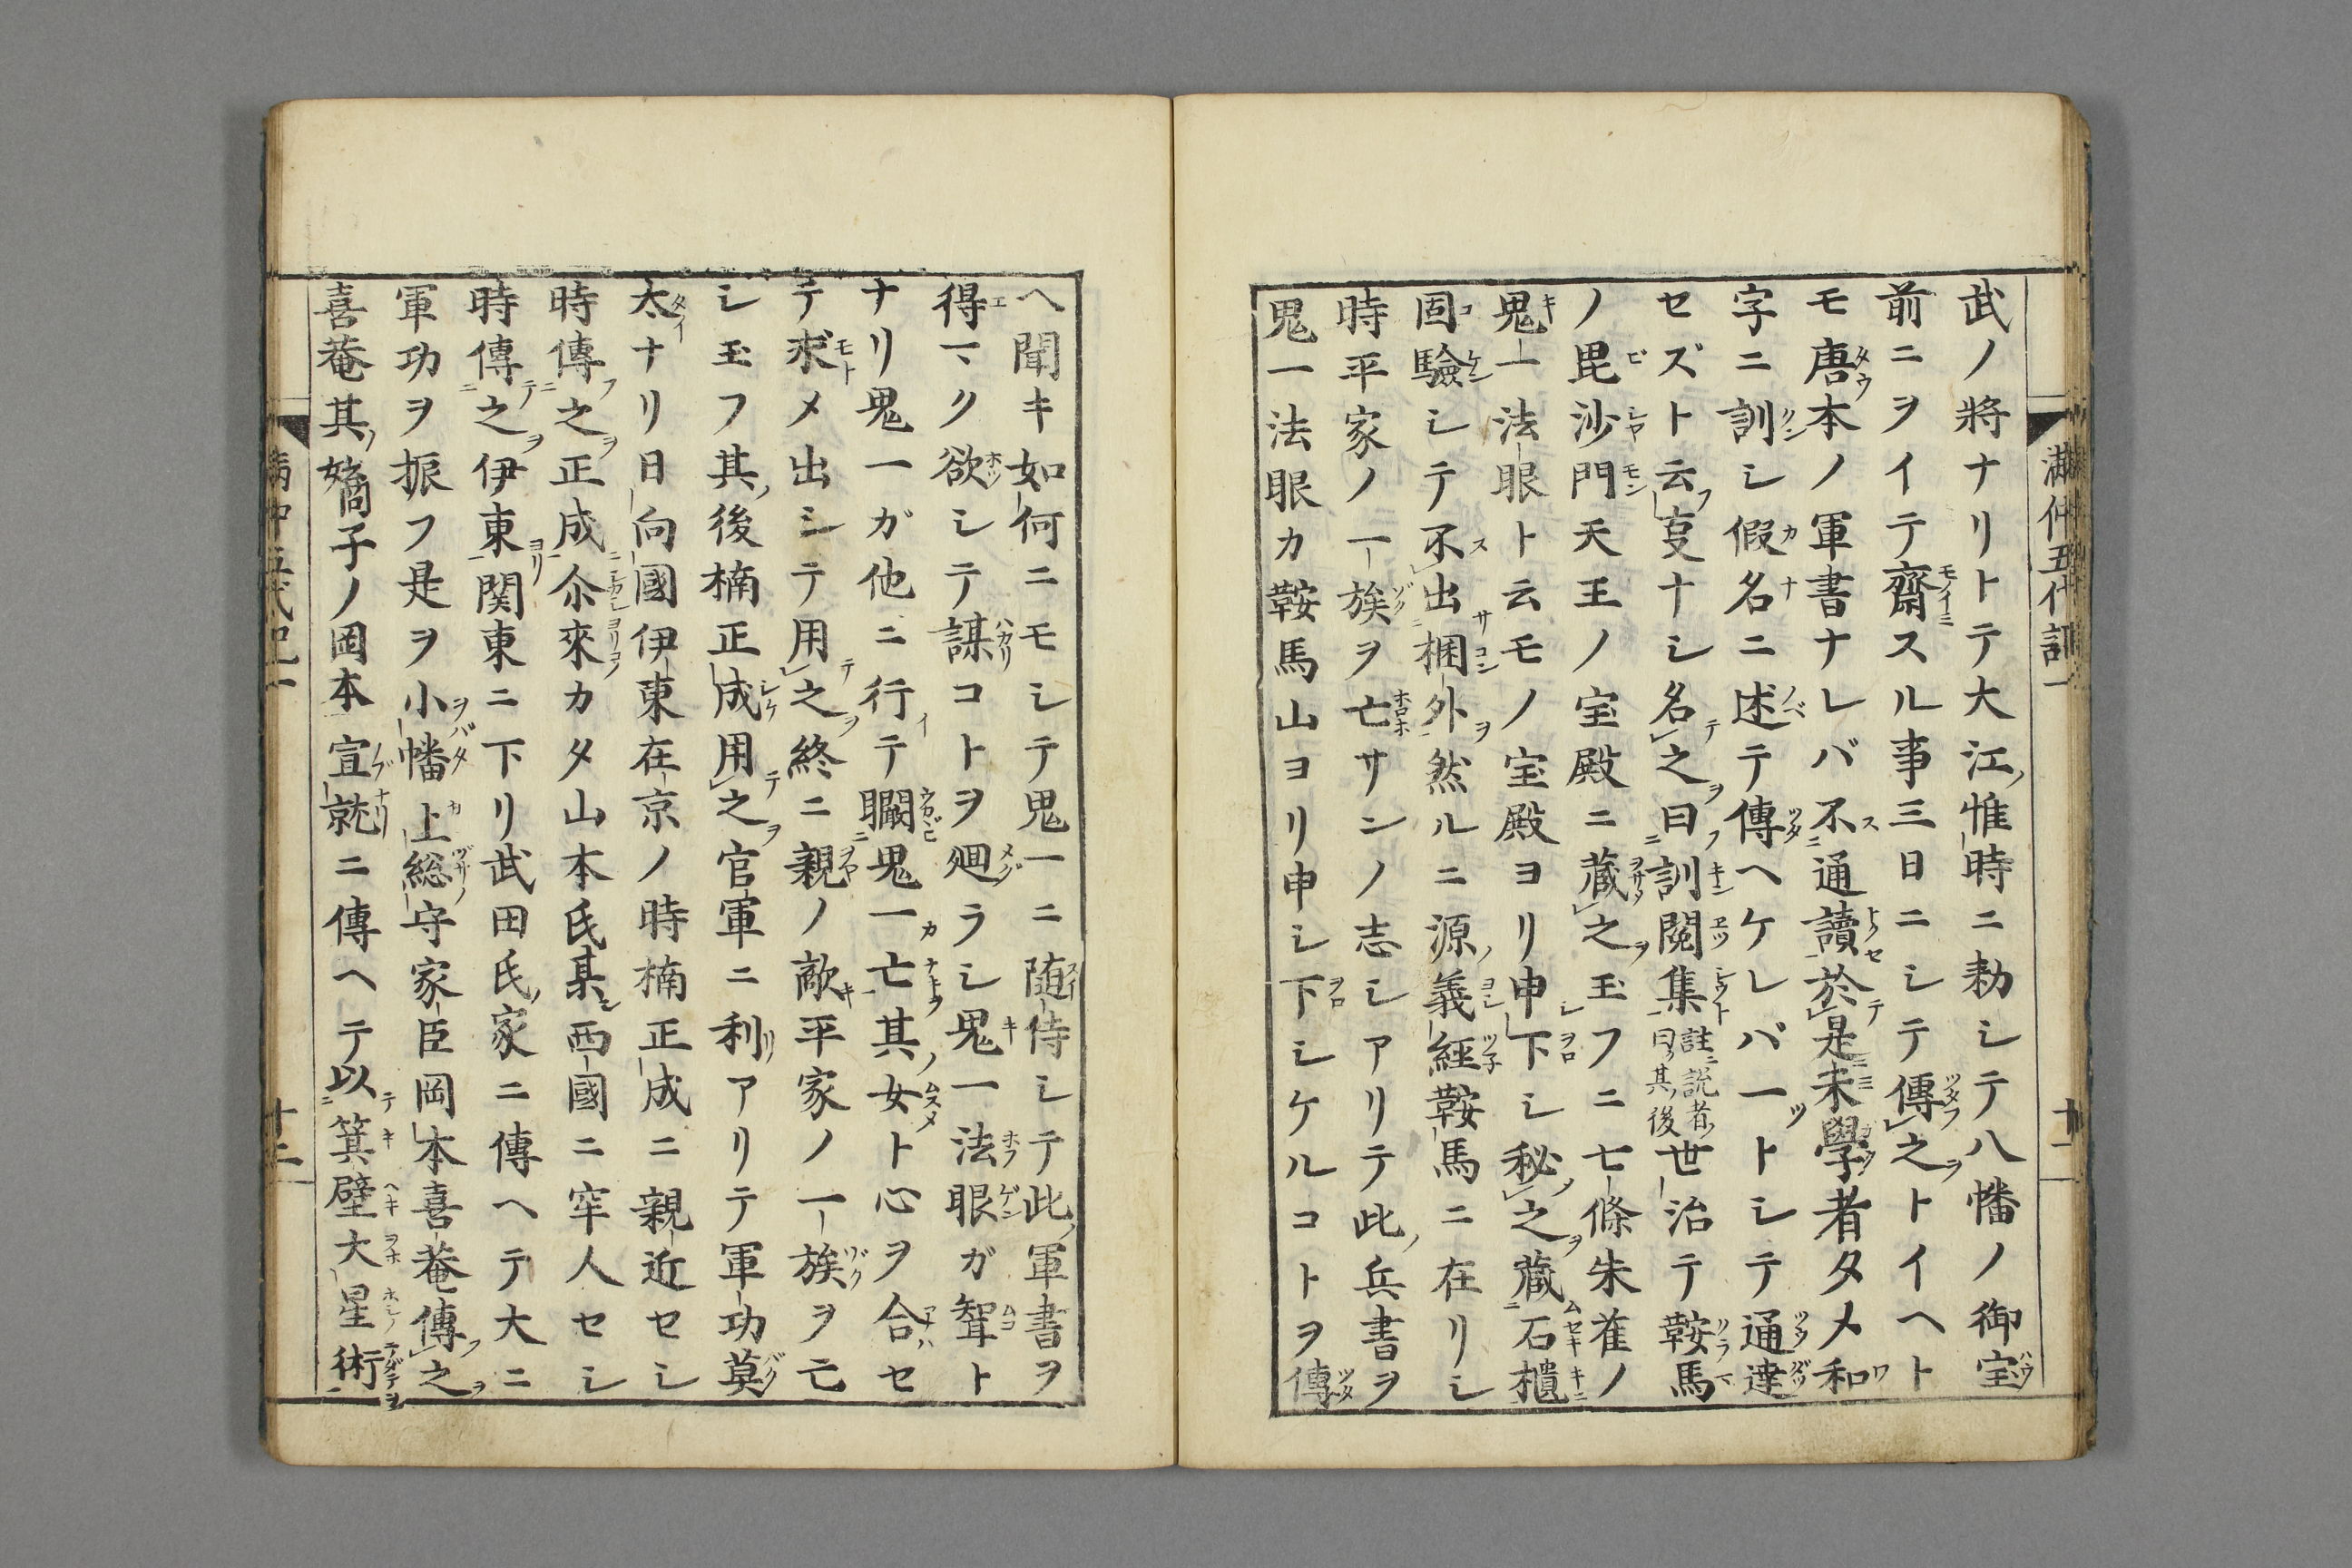 満仲五代記一
十一
武ノ將ナリトテ大江ノ惟時ニ勅シテ八幡ノ御宝
前ニヲイテ齋スル事三日ニシテ傳之トイヘト
モ唐本ノ軍書ナレバ不通讀於是未學者タメ和
字ニ訓シ假名ニ述テ傳ヘケレバ一トシテ通達
セズト云叓ナシ名之曰訓閲集註ニ説者曰其後世治テ鞍馬
ノ毘沙門天王ノ宝殿ニ蔵之玉フニ七條朱雀ノ
鬼一法眼ト云モノ宝殿ヨリ申下シ秘之蔵石櫃
固驗シテ不出梱外然ルニ源義經鞍馬ニ在リシ
時平家ノ一族ヲ亡サンノ志シアリテ此兵書ヲ
鬼一法眼カ鞍馬山ヨリ申シ下シケルコトヲ傳
ヘ聞キ如何ニモシテ鬼一ニ随侍シテ此軍書ヲ
得マク欲シテ謀コトヲ廻ラシ鬼一法眼ガ聟ト
ナリ鬼一ガ他ニ行テ矙鬼一亡其女ト心ヲ合セ
テ求メ出シテ用之終ニ親ノ敵平家ノ一族ヲ亡
シ玉フ其後楠正成用之官軍ニ利アリテ軍功莫
太ナリ日向國伊東在京ノ時楠正成ニ親近セシ
時傳之正成尒來カタ山本氏某西國ニ牢人セシ
時傳之伊東関東ニ下リ武田氏家ニ傳ヘテ大ニ
軍功ヲ振フ是ヲ小幡上総守家臣岡本喜菴傳之
喜菴其嫡子ノ岡本宣就ニ傳ヘテ以箕壁大星術
満仲五代記一
十二